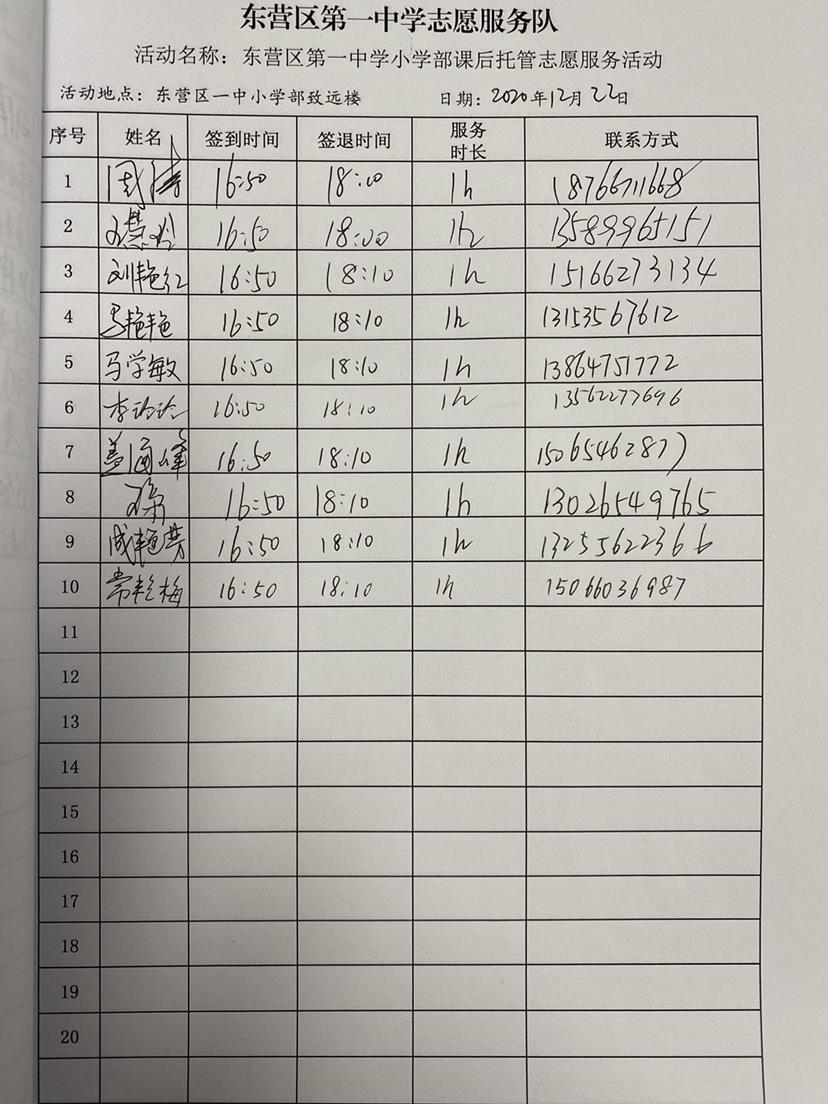 东营区第一中学志愿服务队
活动名称：东营区第一中学小学部课后托管志愿服务活动
活动地点：东营区一中小学部致远楼 日期：2020年12月22日
序号 姓名 签到时间 签退时间 服务时长 联系方式
1 周 16:50 18:00 1h 18766711668
2 慧玲 16:50 18:00 1h 13589965151
3 刘艳红 16:50 18:10 1h 15166273134
4 马艳艳 16:50 18:10 1h 13153567612
5 马学敏 16:50 18:10 1h 13864751772
6 李 16:50 18:10 1h 13562277696
7 盖海峰 16:50 18:10 1h 15065462877
8 16:50 18:10 1h 13026549765
9 成艳芳 16:50 18:10 1h 13255622366
10 常艳梅 16:50 18:10 1h 15066036987
11
12
13
14
15
16
17
18
19
20